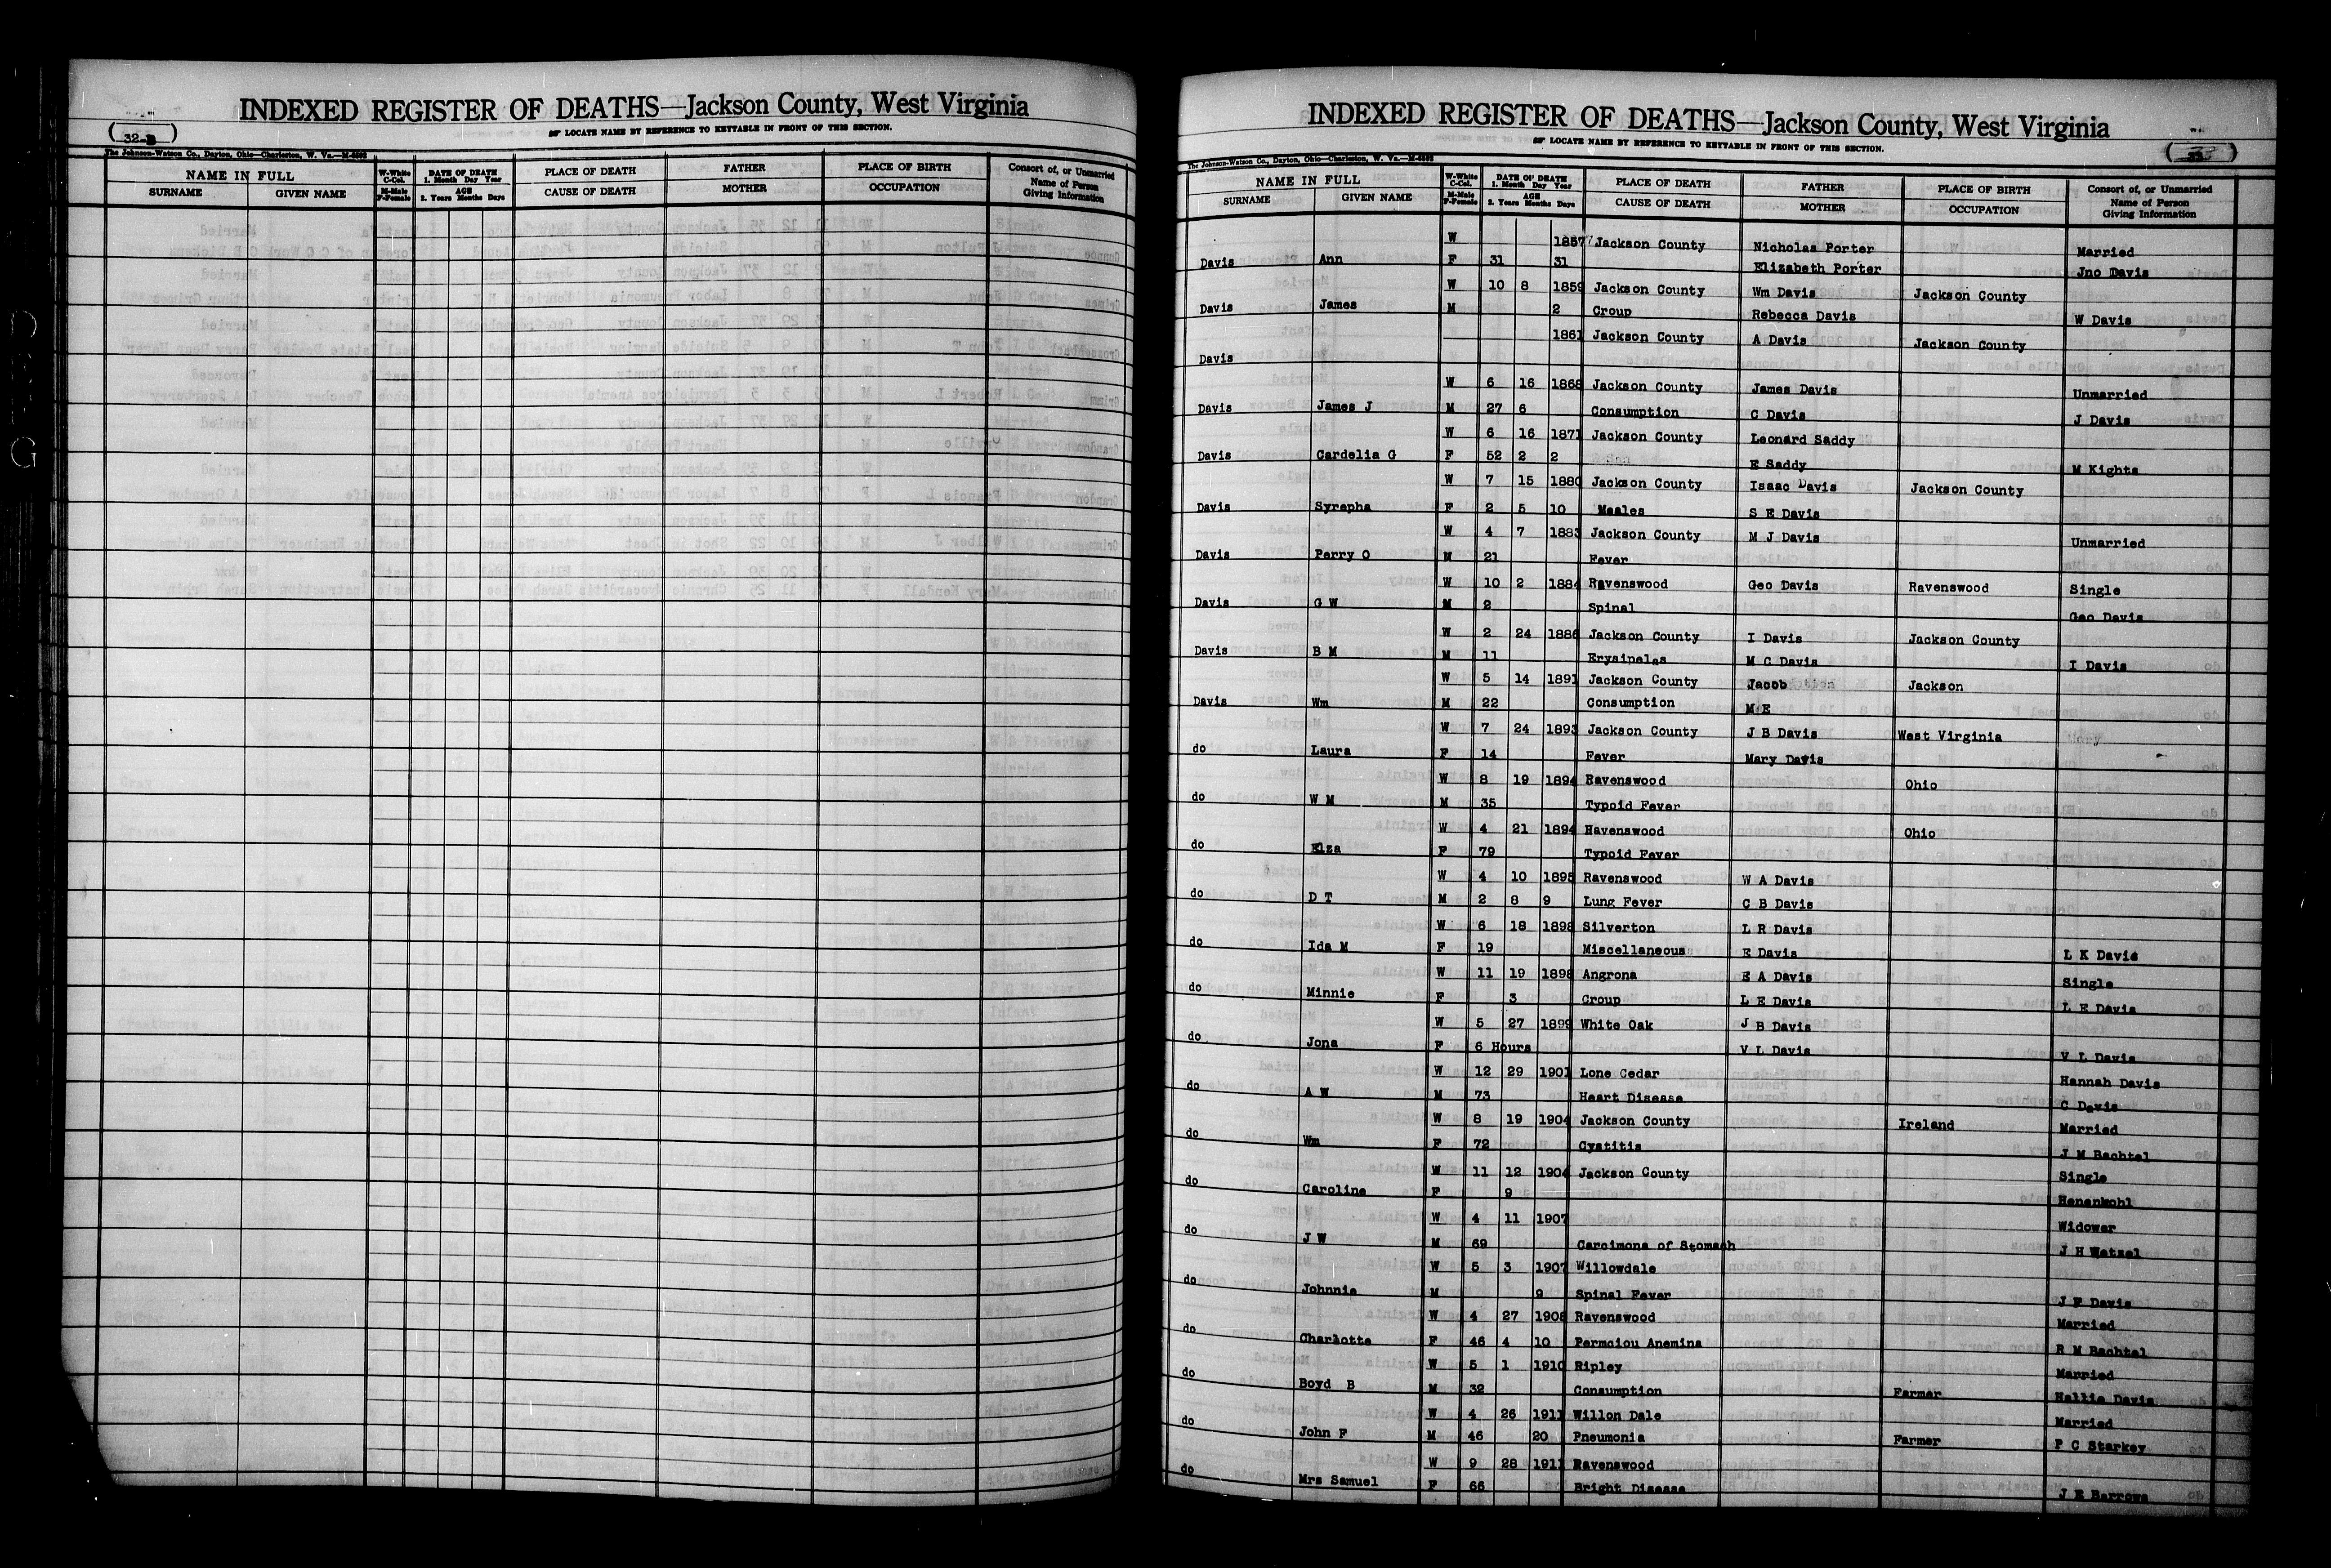 INDEXED REGISTER OF DEATHS—Jackson County, West Virginia
32-B
LOCATE NAME BY REFERENCE TO KEYTABLE IN FRONT OF THIS SECTION.
The Johnson-Watson Co., Dayton, Ohio—Charleston, W. Va.—M-6592
NAME IN FULL W-White C-Col. DATE OF DEATH 1. Month Day Year PLACE OF DEATH FATHER PLACE OF BIRTH Consort of, or Unmarried
SURNAME GIVEN NAME M-Male F-Female AGE 2. Years Months Days CAUSE OF DEATH MOTHER OCCUPATION Name of Person Giving Information
INDEXED REGISTER OF DEATHS—Jackson County, West Virginia
LOCATE NAME BY REFERENCE TO KEYTABLE IN FRONT OF THIS SECTION.
The Johnson-Watson Co., Dayton, Ohio—Charleston, W. Va.—M-6592
NAME IN FULL W-White C-Col. DATE OF DEATH 1. Month Day Year PLACE OF DEATH FATHER PLACE OF BIRTH Consort of, or Unmarried
SURNAME GIVEN NAME M-Male F-Female AGE 2. Years Months Days CAUSE OF DEATH MOTHER OCCUPATION Name of Person Giving Information
W 1857 Jackson County Nicholas Porter Married
Davis Ann F 31 31 Elizabeth Porter Jno Davis
W 10 8 1859 Jackson County Wm Davis Jackson County
Davis James M 2 Croup Rebecca Davis W Davis
1861 Jackson County A Davis Jackson County
Davis
W 6 16 1868 Jackson County James Davis Unmarried
Davis James J M 27 6 Consumption C Davis J Davis
W 6 16 1871 Jackson County Leonard Saddy
Davis Cardelia G F 52 2 2 E Saddy M Kights
W 7 15 1880 Jackson County Isaac Davis Jackson County
Davis Syrepha F 2 5 10 Meales S E Davis
W 4 7 1883 Jackson County M J Davis Unmarried
Davis Perry O M 21 Fever
W 10 2 1884 Ravenswood Geo Davis Ravenswood Single
Davis G W M 2 Spinal Geo Davis
W 2 24 1886 Jackson County I Davis Jackson County
Davis B M M 11 Erysipelas M C Davis I Davis
W 5 14 1891 Jackson County Jacob Jackson
Davis Wm M 22 Consumption M E
W 7 24 1893 Jackson County J B Davis West Virginia
do Laura F 14 Fever Mary Davis
W 8 19 1894 Ravenswood Ohio
do W M M 35 Typoid Fever
W 4 21 1894 Ravenswood Ohio
do Elza F 79 Typoid Fever
W 4 10 1895 Ravenswood W A Davis
do D T M 2 8 9 Lung Fever C B Davis
W 6 18 1898 Silverton L R Davis
do Ida M F 19 Miscellaneous E Davis L K Davis
W 11 19 1898 Angrona E A Davis Single
do Minnie F 3 Croup L E Davis L E Davis
W 5 27 1899 White Oak J B Davis
do Jona F 6 Hours V L Davis V L Davis
W 12 29 1901 Lone Cedar Hannah Davis
do A W M 73 Heart Disease C Davis
W 8 19 1904 Jackson County Ireland Married
do Wm F 72 Cystitis J M Bachtel
W 11 12 1904 Jackson County Single
do Caroline F 9 Henenkohl
W 4 11 1907 Widower
do J W M 69 Carcimona of Stomach J H Wetzel
W 5 3 1907 Willowdale
do Johnnie M 9 Spinal Fever J F Davis
W 4 27 1908 Ravenswood Married
do Charlotte F 46 4 10 Permciou Anemina R M Bachtel
W 5 1 1910 Ripley Married
do Boyd B M 32 Consumption Farmer Hallie Davis
W 4 26 1911 Willon Dale Married
do John F M 46 20 Pneumonia Farmer P C Starkey
W 9 28 1911 Ravenswood
do Mrs Samuel F 66 Bright Disease J E Barrows